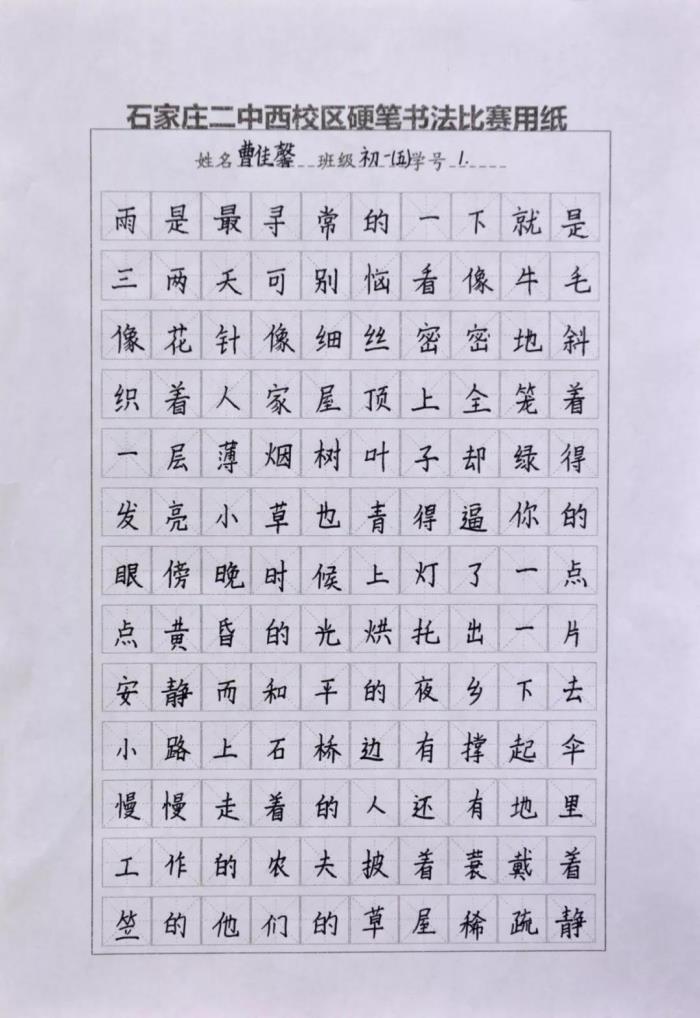 石家庄二中西校区硬笔书法比赛用纸
姓名曹佳馨班级初一(五)学号1.
雨是最寻常的一下就是
三两天可别恼看像牛毛
像花针像细丝密密地斜
织着人家屋顶上全笼着
一层薄烟树叶子却绿得
发亮小草也青得逼你的
眼傍晚时候上灯了一点
点黄昏的光烘托出一片
安静而和平的夜乡下去
小路上石桥边有撑起伞
慢慢走着的人还有地里
工作的农夫披着蓑戴着
笠的他们的草屋稀疏静